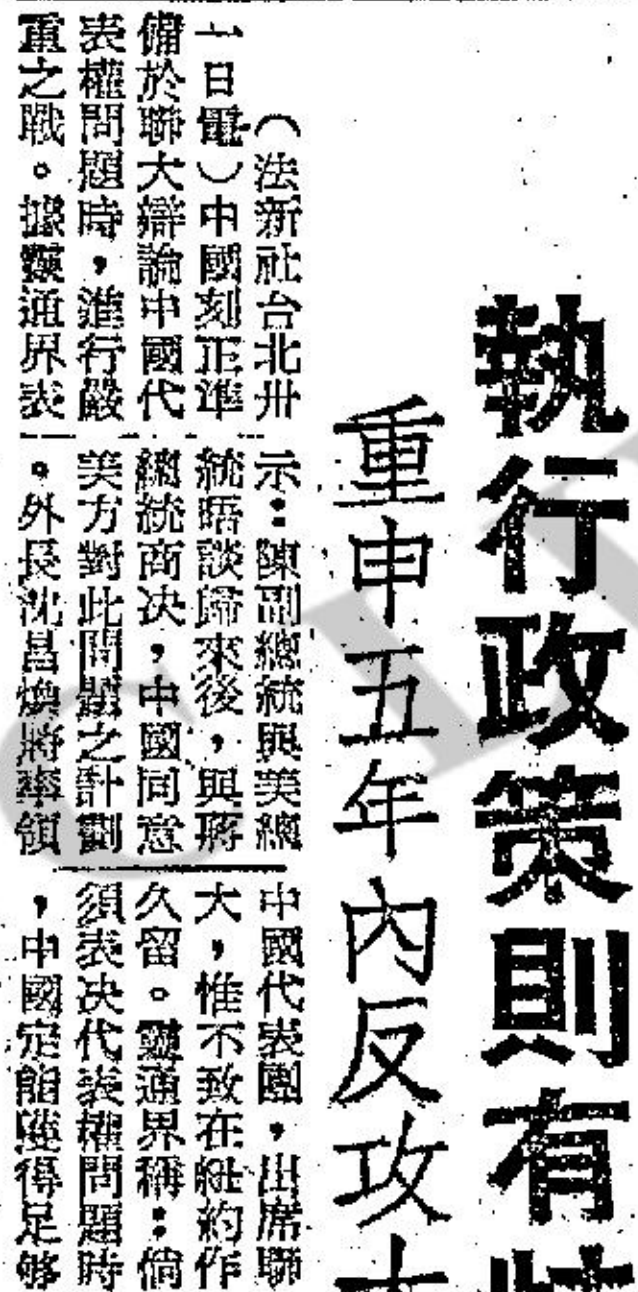 執行政策則有
重申五年內反攻
（法新社台北卅
一日電）中國刻正準
備於聯大辯論中國代
表權問題時，進行嚴
重之戰。據靈通界表
示：陳副總統與美總
統晤談歸來後，與蔣
總統商决，中國同意
美方對此問題之計劃
。外長沈昌煥將率領
中國代表團，出席聯
大，惟不致在紐約作
久留。靈通界稱：倘
須表决代表權問題時
，中國定能獲得足够